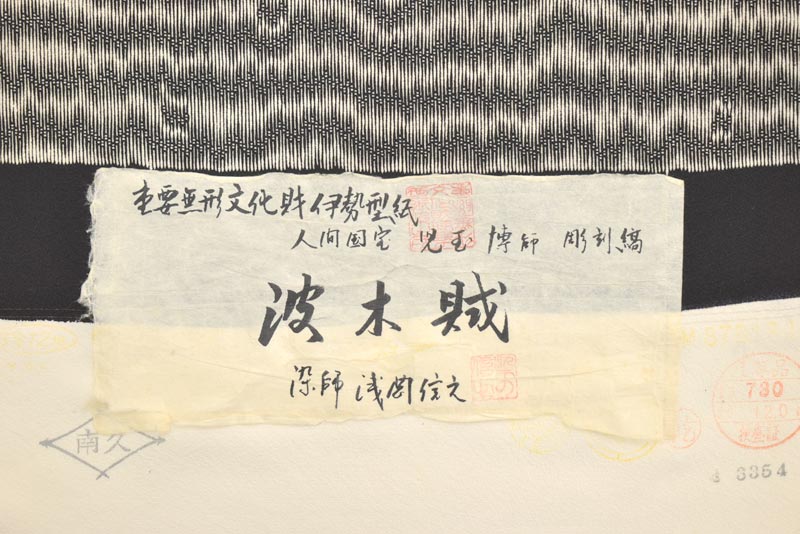 重要無形文化財 伊勢型紙
人间国宝 児玉 博師 彫刻縞
波木賊
染師 浅岡信元
南久
780
3354